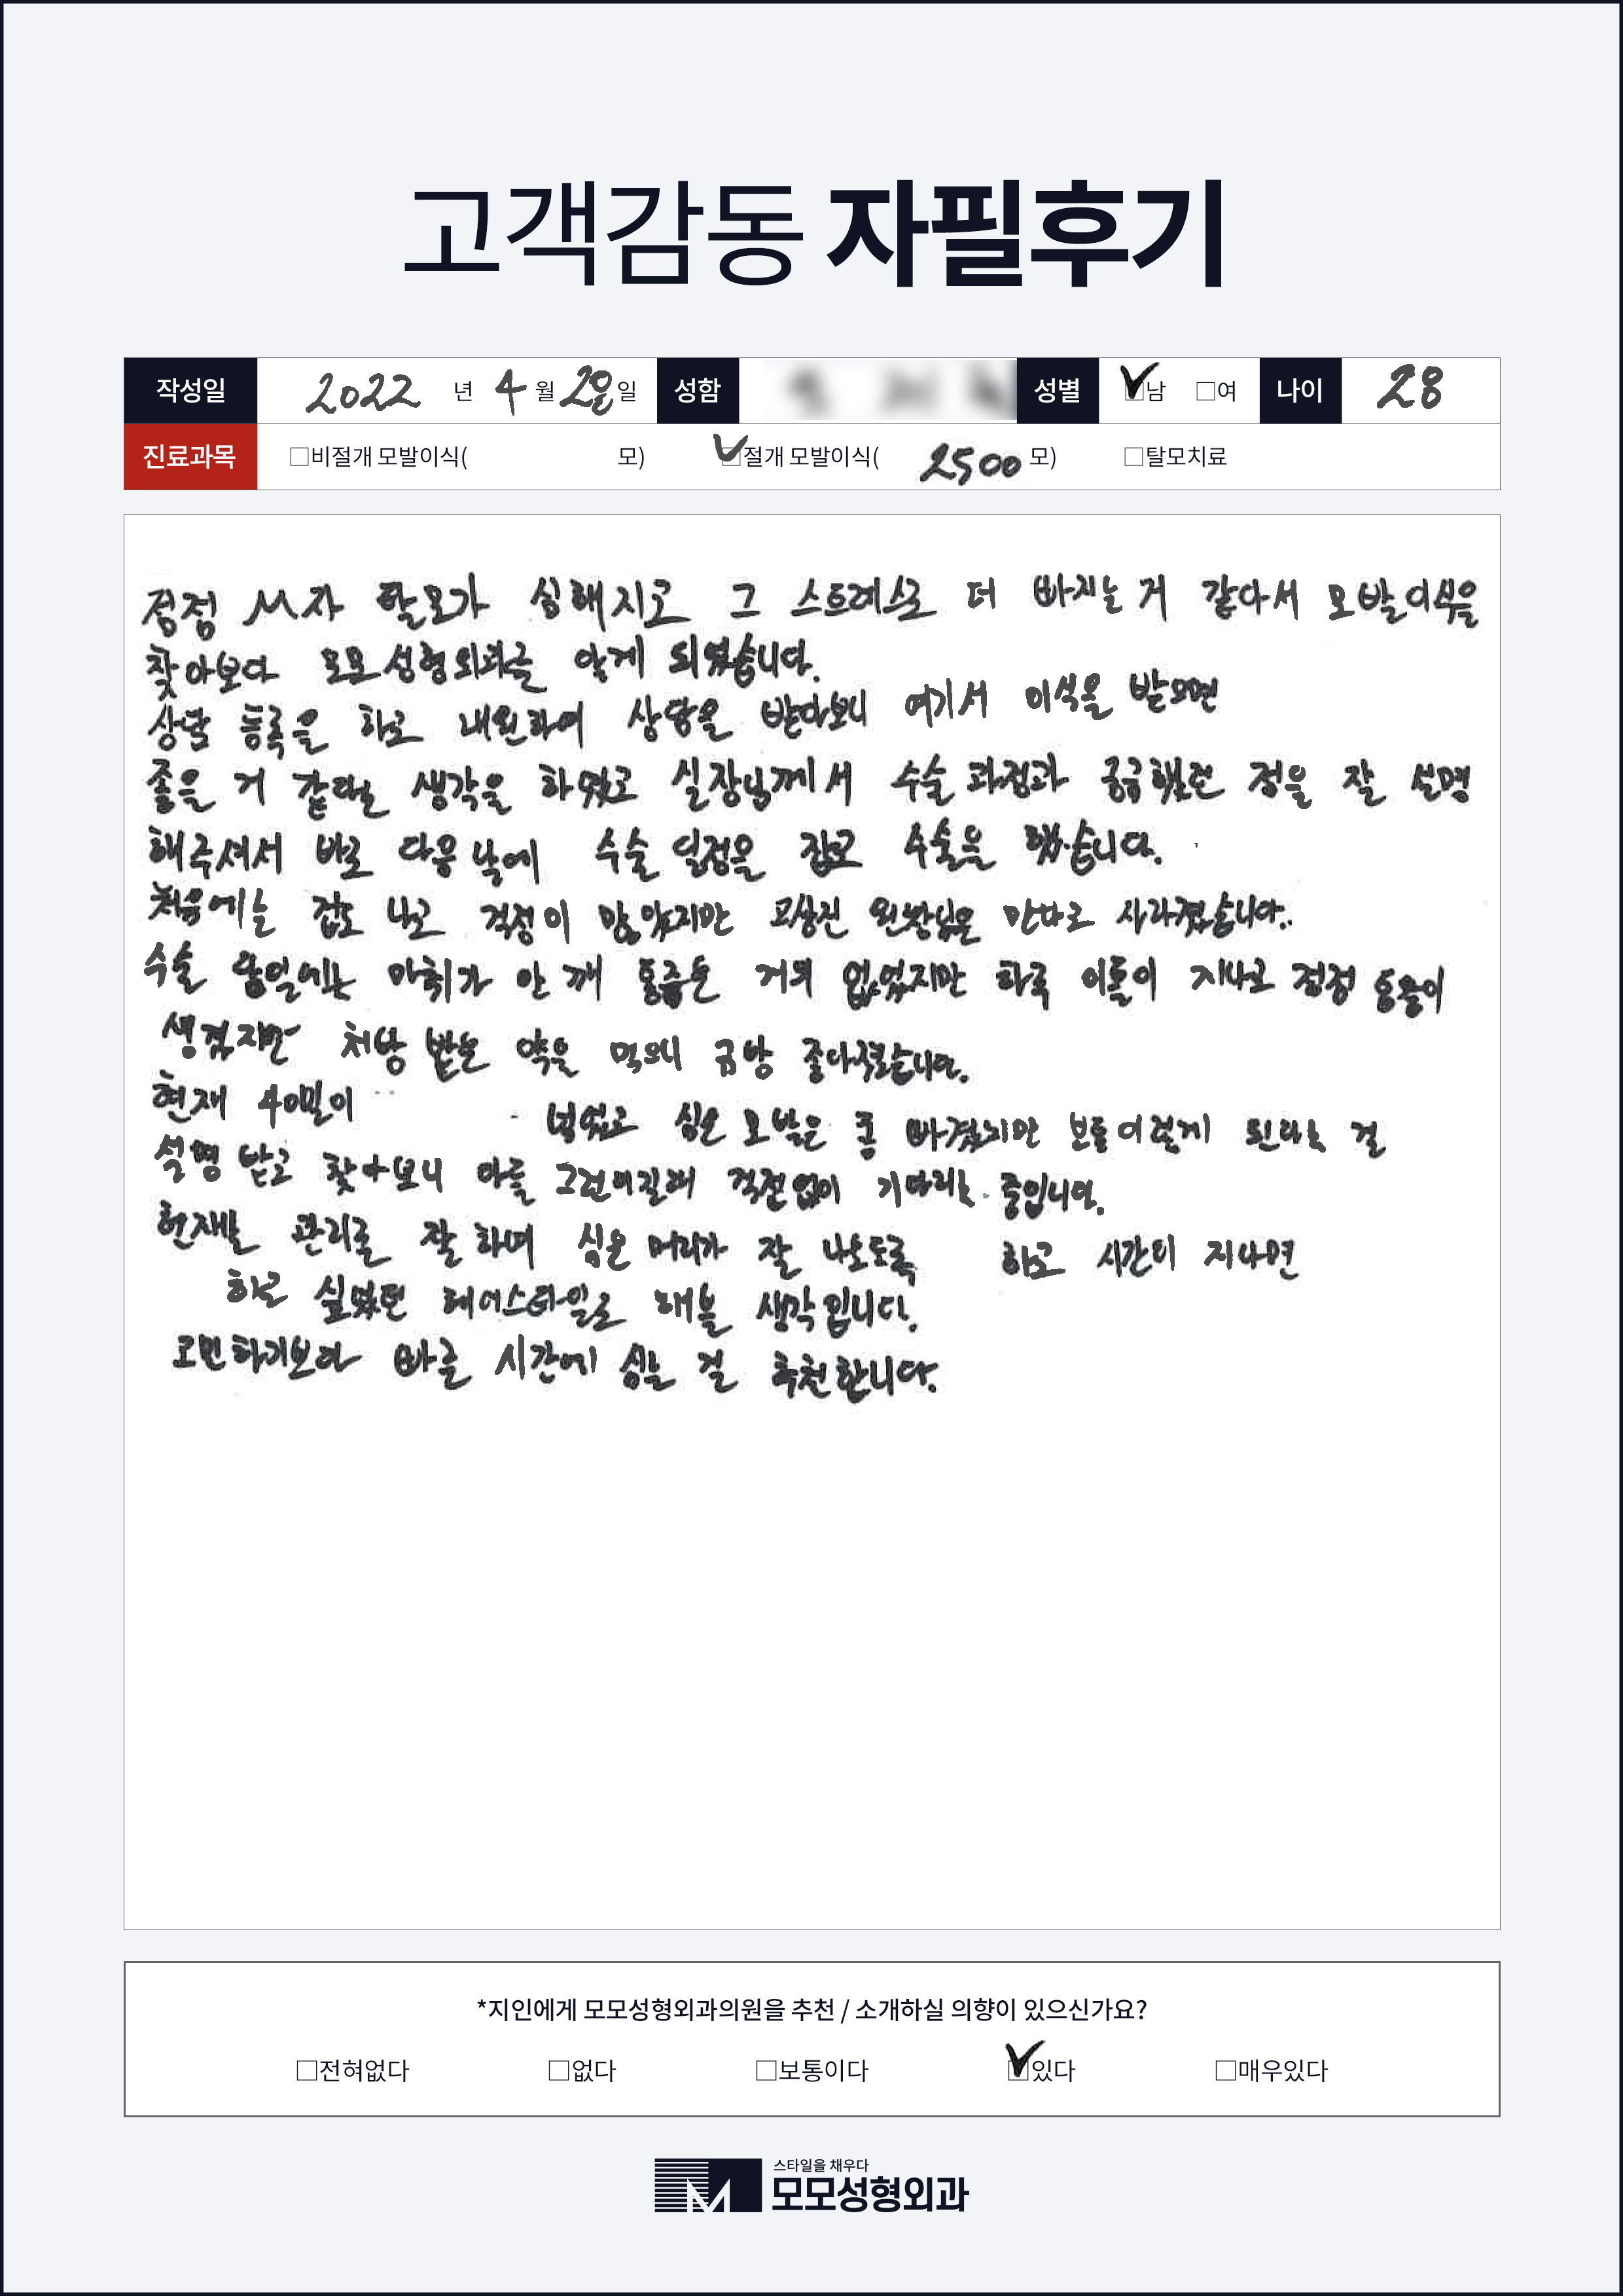 고객감동 자필후기
작성일 2022 년 4 월 28 일 성함 성별 ☑남 □여 나이 28
진료과목 □비절개 모발이식( 모) ☑절개 모발이식( 2500 모) □탈모치료
점점 M자 탈모가 심해지고 그 스트레스로 더 빠지는 거 같아서 모발이식을
찾아보다 모모성형외과를 알게 되었습니다.
상담 등록을 하고 내원하여 상담을 받아보니 여기서 이식을 받으면
좋을 거 같다는 생각을 하였고 실장님께서 수술 과정과 궁금했던 점을 잘 설명
해주셔서 바로 다음 날에 수술 일정을 잡고 수술을 했습니다.
처음에는 겁도 나고 걱정이 많았지만 고상진 원장님을 만나고 사라졌습니다..
수술 당일에는 마취가 안 깨 통증은 거의 없었지만 하루 이틀이 지나고 점점 통증이
생겼지만 처방 받은 약을 먹으니 금방 좋아졌습니다.
현재 40일이 넘었고 심은 모발은 좀 빠졌지만 보통 이렇게 된다는 걸
설명 받고 찾아보니 다들 그런이길래 걱정없이 기다리는 중입니다.
현재발 관리를 잘 하며 심은 머리가 잘 나오도록 하고 시간이 지나면
하고 싶었던 헤어스타일로 해볼 생각입니다.
고민하기보다 빠른 시간에 심는 걸 추천합니다.
*지인에게 모모성형외과의원을 추천 / 소개하실 의향이 있으신가요?
□전혀없다 □없다 □보통이다 ☑있다 □매우있다
스타일을 채우다
모모성형외과